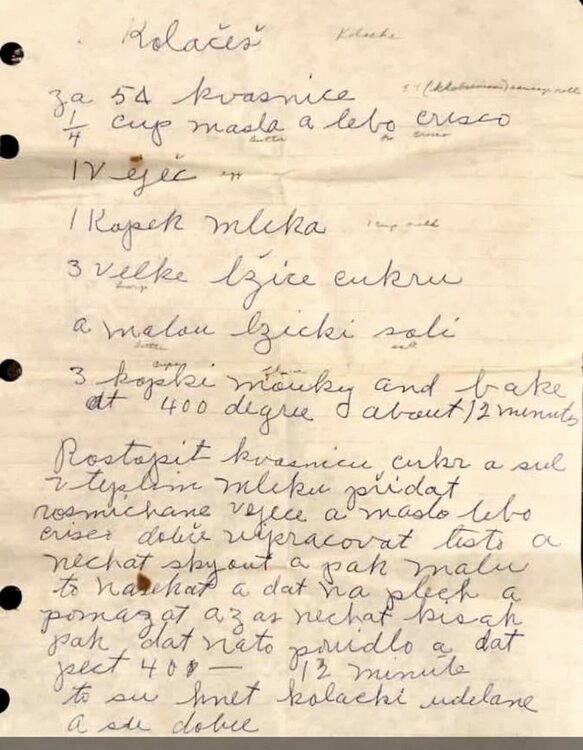 Kolačeš Kolache
za 5¢ kvasnice
1/4 cup masla a lebo crisco
butter or crisco
1 Vejéc egg
1 Kopek mleka 1 cup milk
3 velke lžice cukru
large
a malou lzicki soli
salt
cups flour
3 kopki mouky and bake
at 400 degree about 12 minutes
Rostopit kvasnicu, cukr a sul
v teplem mleku přidat
rosmichane vejece a maslo lebo
crisco dobře vipracovat testo a
nechat skynout a pak malu
to nasekat a dat na plech a
pomazat a zas nechat kisat
pak dat nato povidlo a dat
pect 400 — 12 minute
to su hnet kolacki udelane
a sou dobre